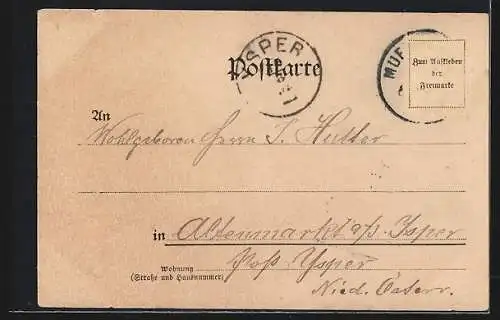 YSPER
Postkarte
MUE
Zum Aufkleben
der
Freimarke
An
Wohlgeboren Herrn J. Hutter
in Altenmarkt a/s. Isper
Wohnung
(Straße und Hausnummer)
Post Ysper
Nied. Österr.